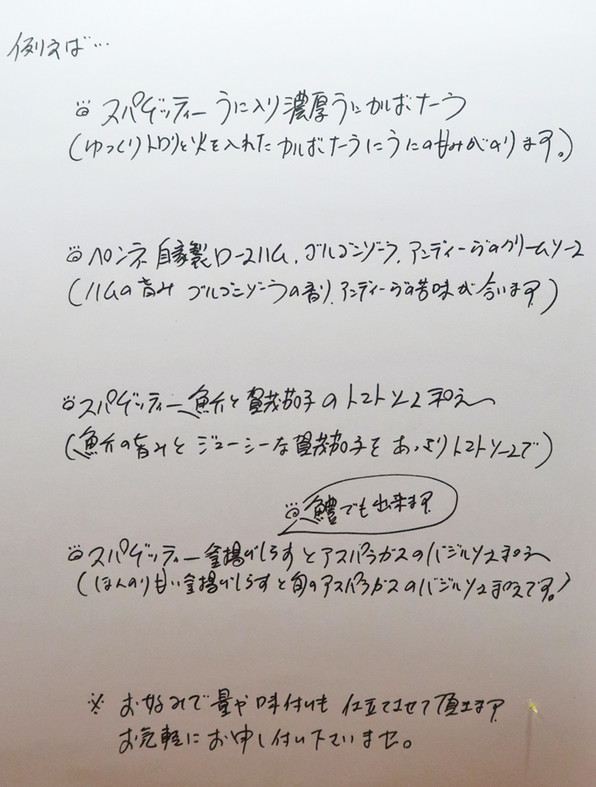 例えば…
スパゲッティー うに入り濃厚うにかるぼなーら
(ゆっくりトロリと火を入れた かるぼなーらにうにの甘みがのります。)
ペンネ 自家製ロースハム、ゴルゴンゾーラ、アンディーヴのクリームソース
(ハムの旨み ゴルゴンゾーラの香り、アンディーヴの苦味が合います)
スパゲッティー 魚介と賀茂茄子のトマトソース和え
(魚介の旨みと ジューシーな賀茂茄子を あっさりトマトソースで)
鱧でも出来ます
スパゲッティー 釜揚げしらすとアスパラガスのバジルソース和え
(ほんのり甘い釜揚げしらすと旬のアスパラガスのバジルソース和えです。)
※ お好みで量や味付けも 仕立てさせて頂きます
お気軽にお申し付け下さいませ。